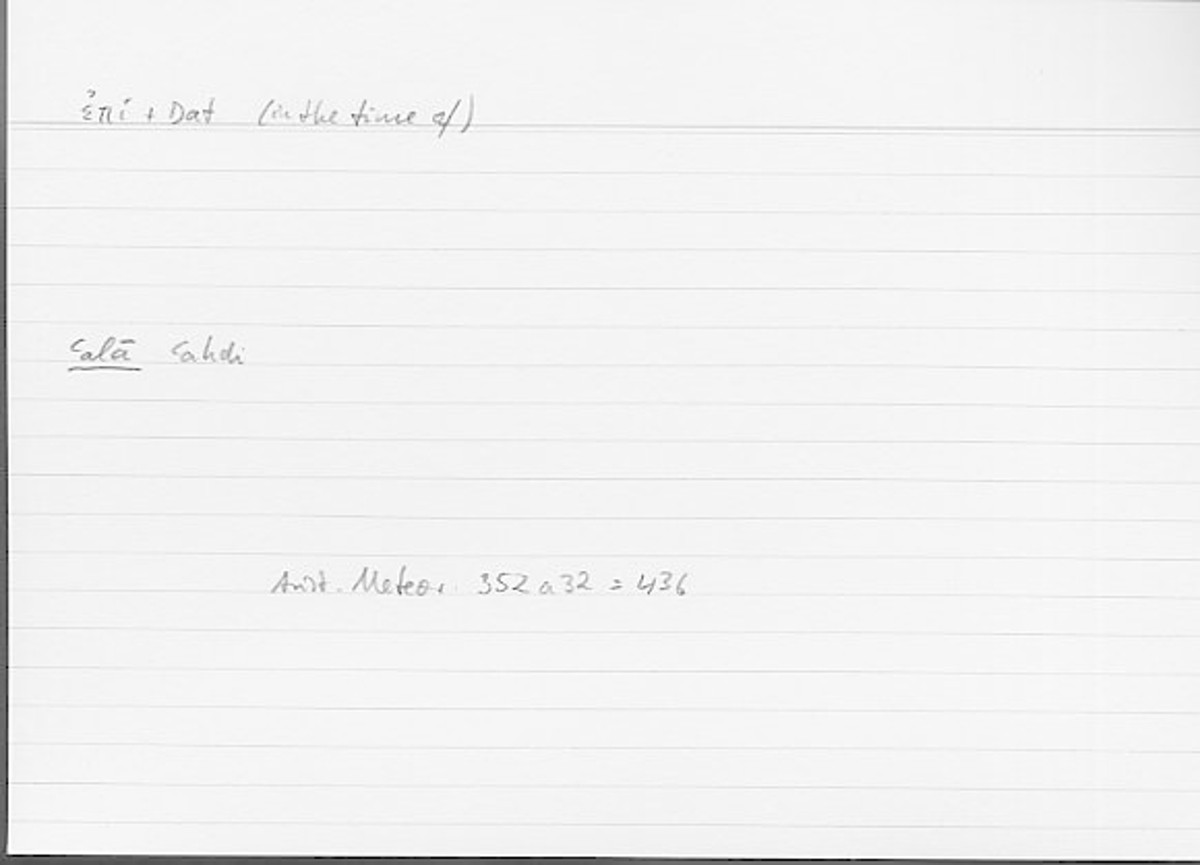 ἐπί + Dat (in the time of)
ʿalā ʿahdi
Arist. Meteor. 352 a 32 = 436